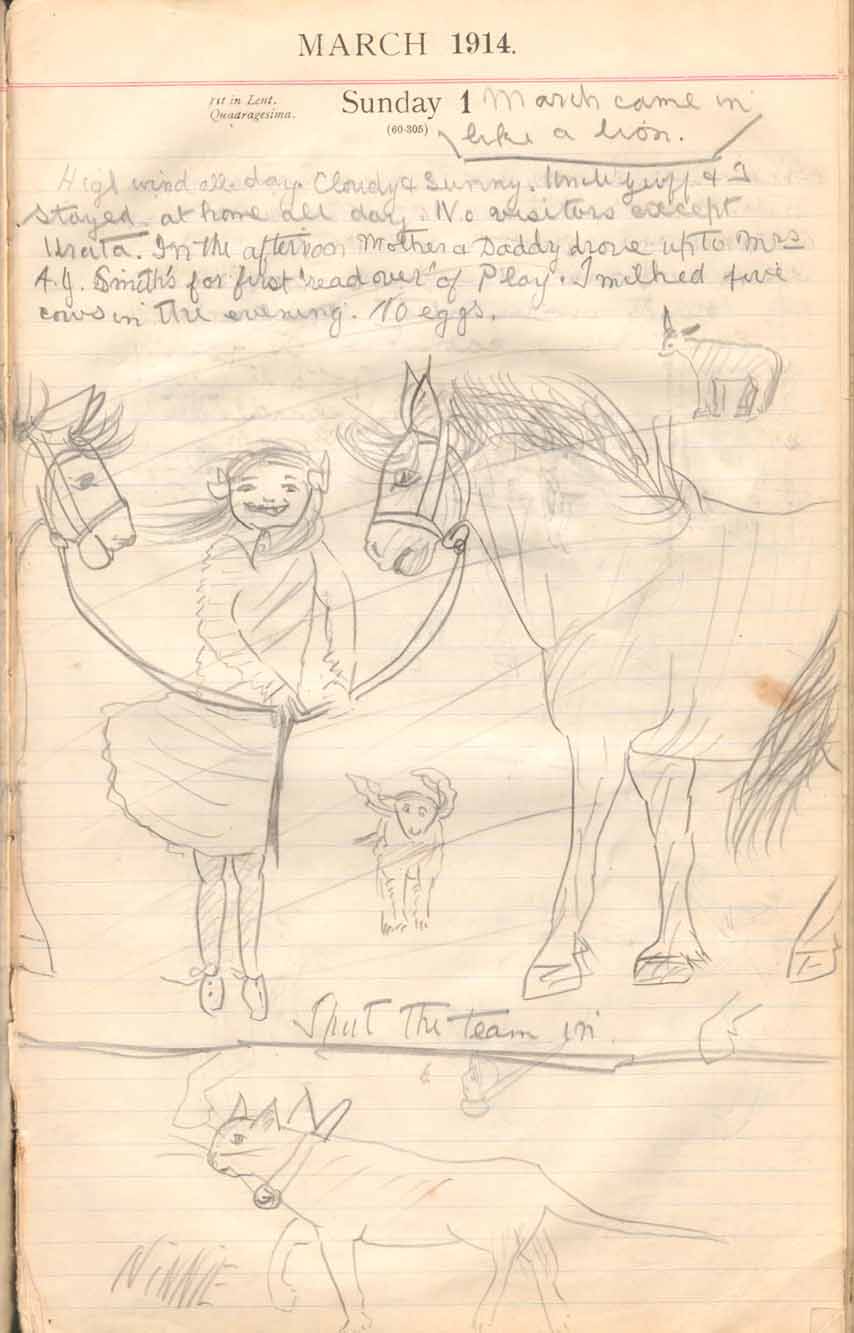 MARCH 1914.
1st in Lent.
Quadragesima.
Sunday 1
(60-305)
March came in
like a lion.
High wind all day. Cloudy & Sunny. Uncle Geoff & I
stayed at home all day. No visitors except
In the afternoon Mother & Daddy drove up to Mrs
A.J. Smith's for first "read over" of Play. I milked five
cows in the evening. No eggs.
I put the team in
NINNIE